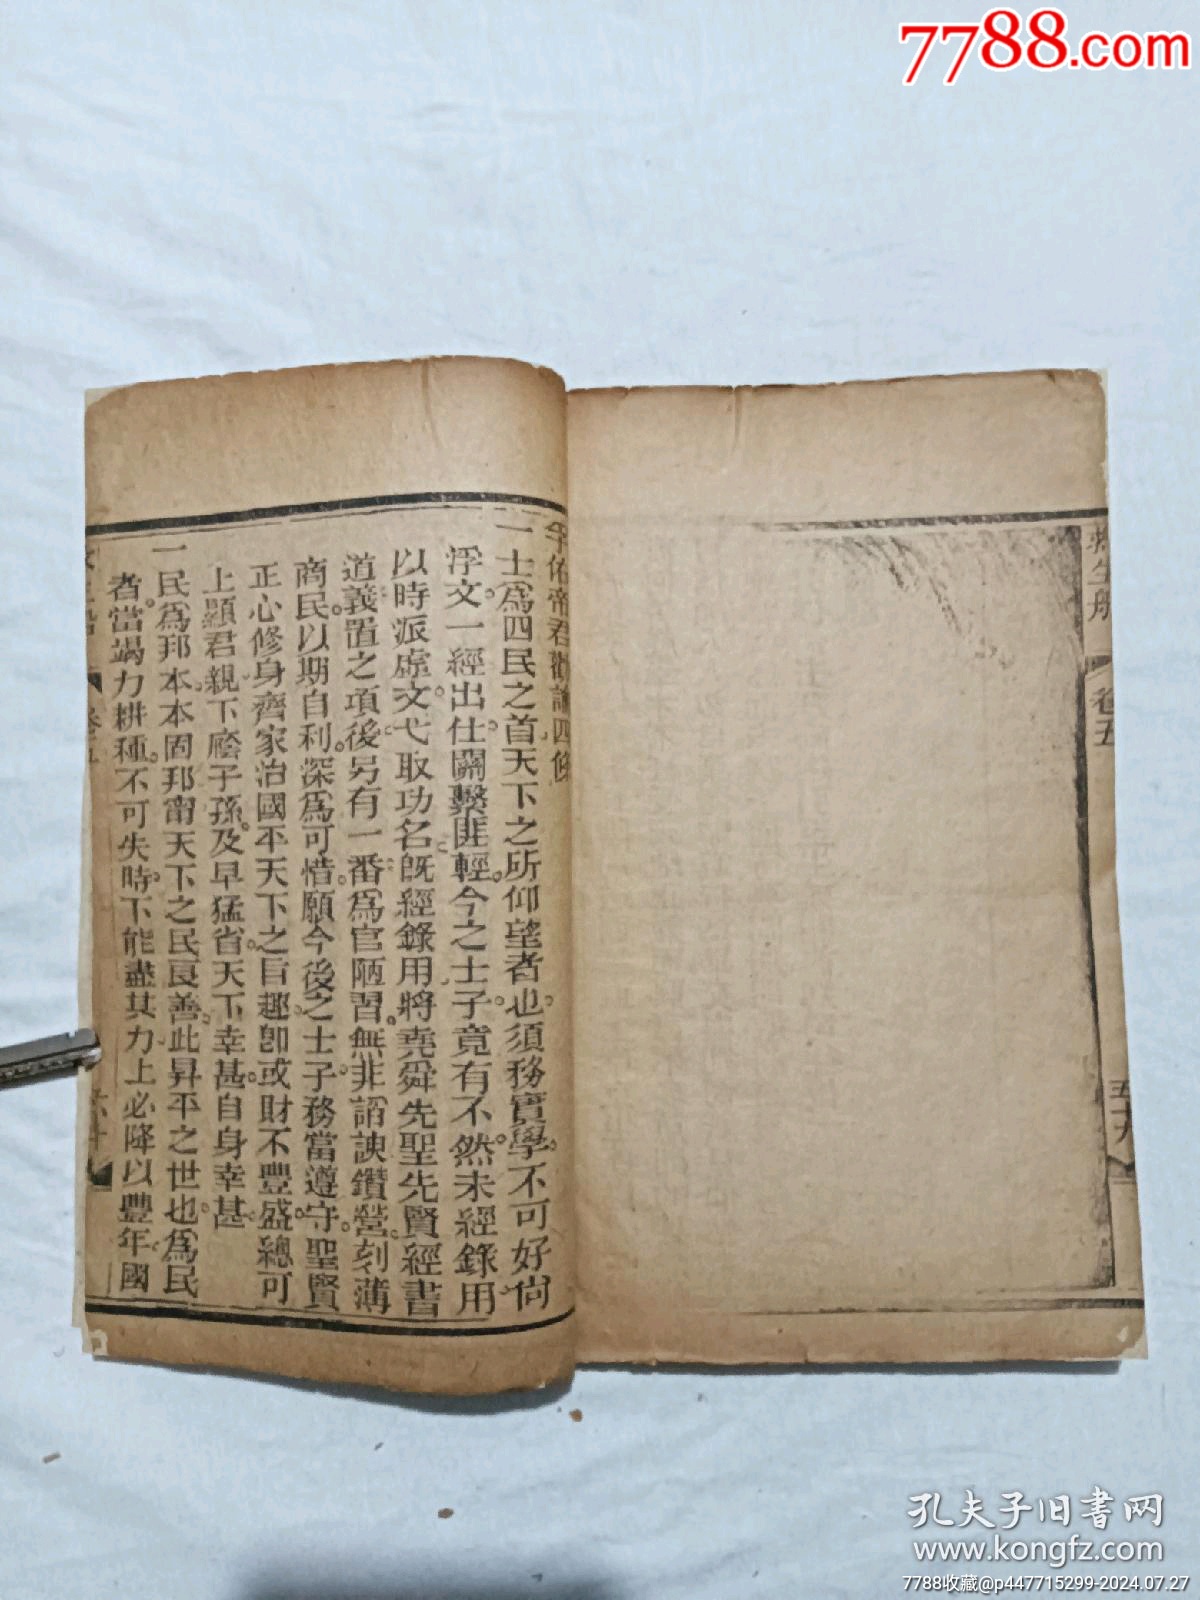 7788.com
救生船
卷五
五十九
孚佑帝君勸諭四條
一士爲四民之首天下之所仰望者也須務實學不可好尙
浮文一經出仕關繫匪輕今之士子竟有不然未經錄用
以時派虛文弋取功名旣經錄用將堯舜先聖先賢經書
道義置之項後另有一番爲官陋習無非諂諛鑽營刻薄
商民以期自利深爲可惜願今後之士子務當遵守聖賢
正心修身齊家治國平天下之旨趣卽或財不豐盛總可
上顯君親下廕子孫及早猛省天下幸甚自身幸甚
一民爲邦本本固邦甯天下之民良善此昇平之世也爲民
者當竭力耕種不可失時下能盡其力上必降以豐年國
卷五
六十
孔夫子旧书网
www.kongfz.com
7788收藏@p447715299-2024.07.27